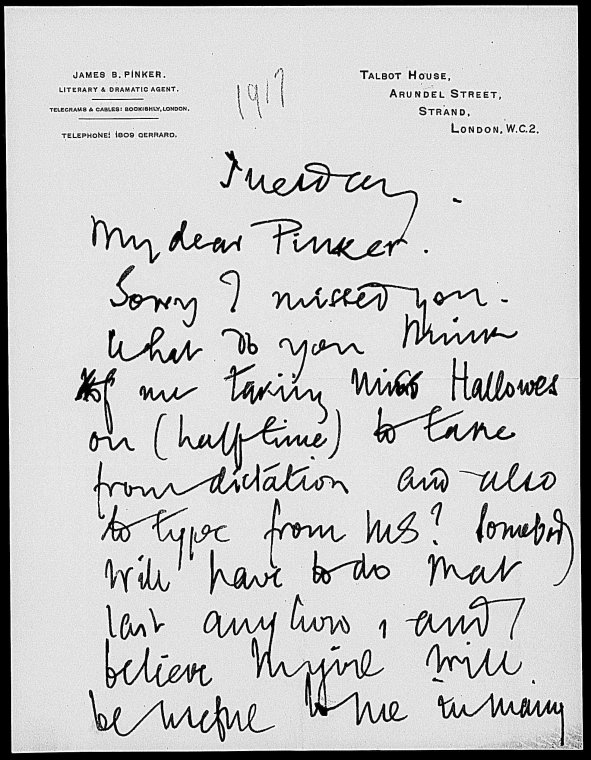 JAMES B. PINKER.
LITERARY & DRAMATIC AGENT.
TELEGRAMS & CABLES: BOOKISHLY, LONDON.
TELEPHONE: 1809 GERRARD.
1917
TALBOT HOUSE,
ARUNDEL STREET,
STRAND,
LONDON, W.C.2.
Tuesday.
My dear Pinker.
Sorry I missed you.
What do you think
of me taking Miss Hallowes
on (half time) to take
from dictation and also
to type from MS? Somebody
will have to do that
last anyhow, and I
believe the girl will
be useful to me in many